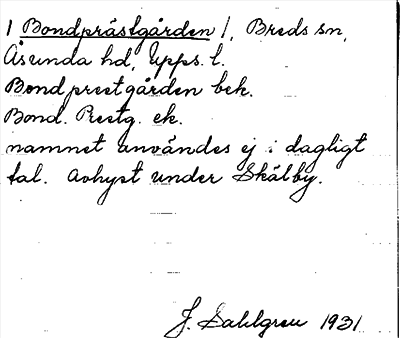 / Bondprästgården /, Breds sn,
Åsunda hd, Upps. l.
Bondprestgården bek.
Bond. Prestg. ek.
namnet användes ej i dagligt
tal. Avhyst under Skälby.
J. Sahlgren 1931